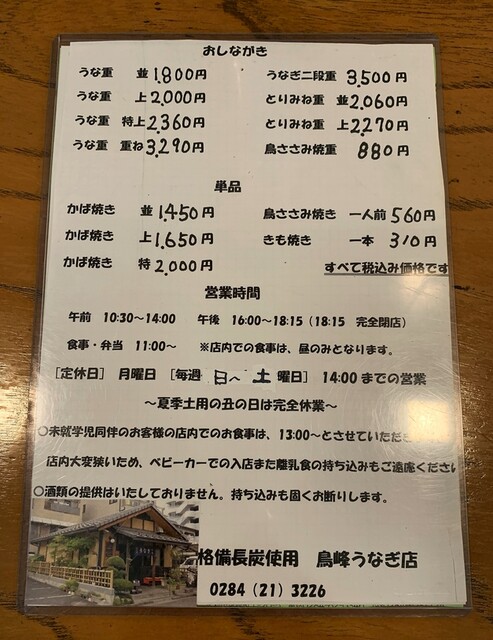 おしながき
うな重 並 1.800円 うなぎ二段重 3.500円
うな重 上 2.000円 とりみね重 並 2.060円
うな重 特上 2.360円 とりみね重 上 2.270円
うな重 重ね 3.290円 鳥ささみ焼重 880円
単品
かば焼き 並 1.450円 鳥ささみ焼き 一人前 560円
かば焼き 上 1.650円 きも焼き 一本 310円
かば焼き 特 2.000円 すべて税込み価格です
営業時間
午前 10:30～14:00 午後 16:00～18:15（18:15 完全閉店）
食事・弁当 11:00～ ※店内での食事は、昼のみとなります。
［定休日］ 月曜日 ［毎週 日～土曜日］ 14:00までの営業
～夏季土用の丑の日は完全休業～
○未就学児同伴のお客様の店内でのお食事は、13:00～とさせていただき
店内大変狭いため、ベビーカーでの入店また離乳食の持ち込みもご遠慮ください
○酒類の提供はいたしておりません。持ち込みも固くお断りします。
格備長炭使用 鳥峰うなぎ店
0284（21）3226